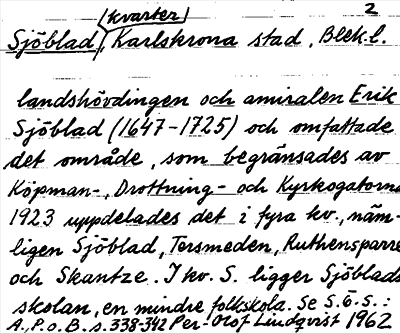 kvarter 2
Sjöblad, Karlskrona stad, Blek.l.
landshövdingen och amiralen Erik
Sjöblad (1647-1725) och omfattade
det område, som begränsades av
Köpman-, Drottning- och Kyrkogatorna
1923 uppdelades det i fyra kv., näm-
ligen Sjöblad, Tersmeden, Ruthensparre
och Skantze. I kv. S. ligger Sjöblads
skolan, en mindre folkskola. Se S.ö.S.:
A., P.o.B., s. 338-342 Per-Olof Lindqvist 1962